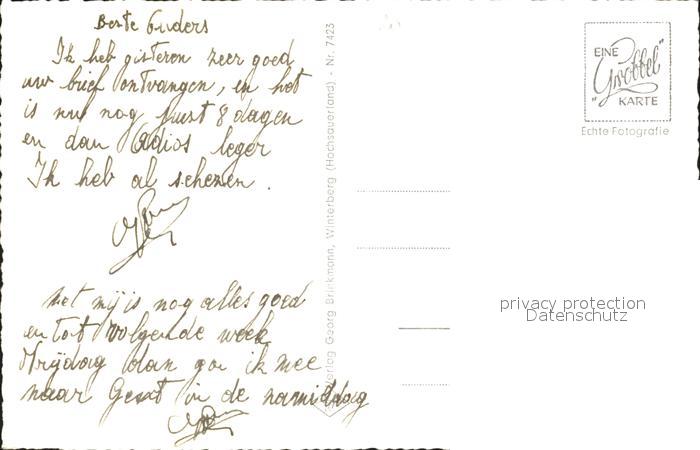 Beste Ouders
Ik heb gisteren zeer goed
uw brief ontvangen, en het
is nu nog juist 8 dagen
en dan Adios leger
Ik heb al
Met mij is nog alles goed
en tot volgende week
Vrijdag dan ga ik mee
naar in de namiddag
Verlag Georg Brinkmann, Winterberg (Hochsauerland) - Nr. 7423
EINE
"Grobbel"
KARTE
Echte Fotografie
privacy protection
Datenschutz